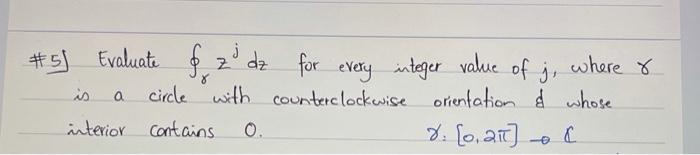 #5] Evaluate ∮_γ z^j dz for every integer value of j, where γ
is a circle with counterclockwise orientation & whose
interior contains 0. γ: [0, 2π] → ℂ